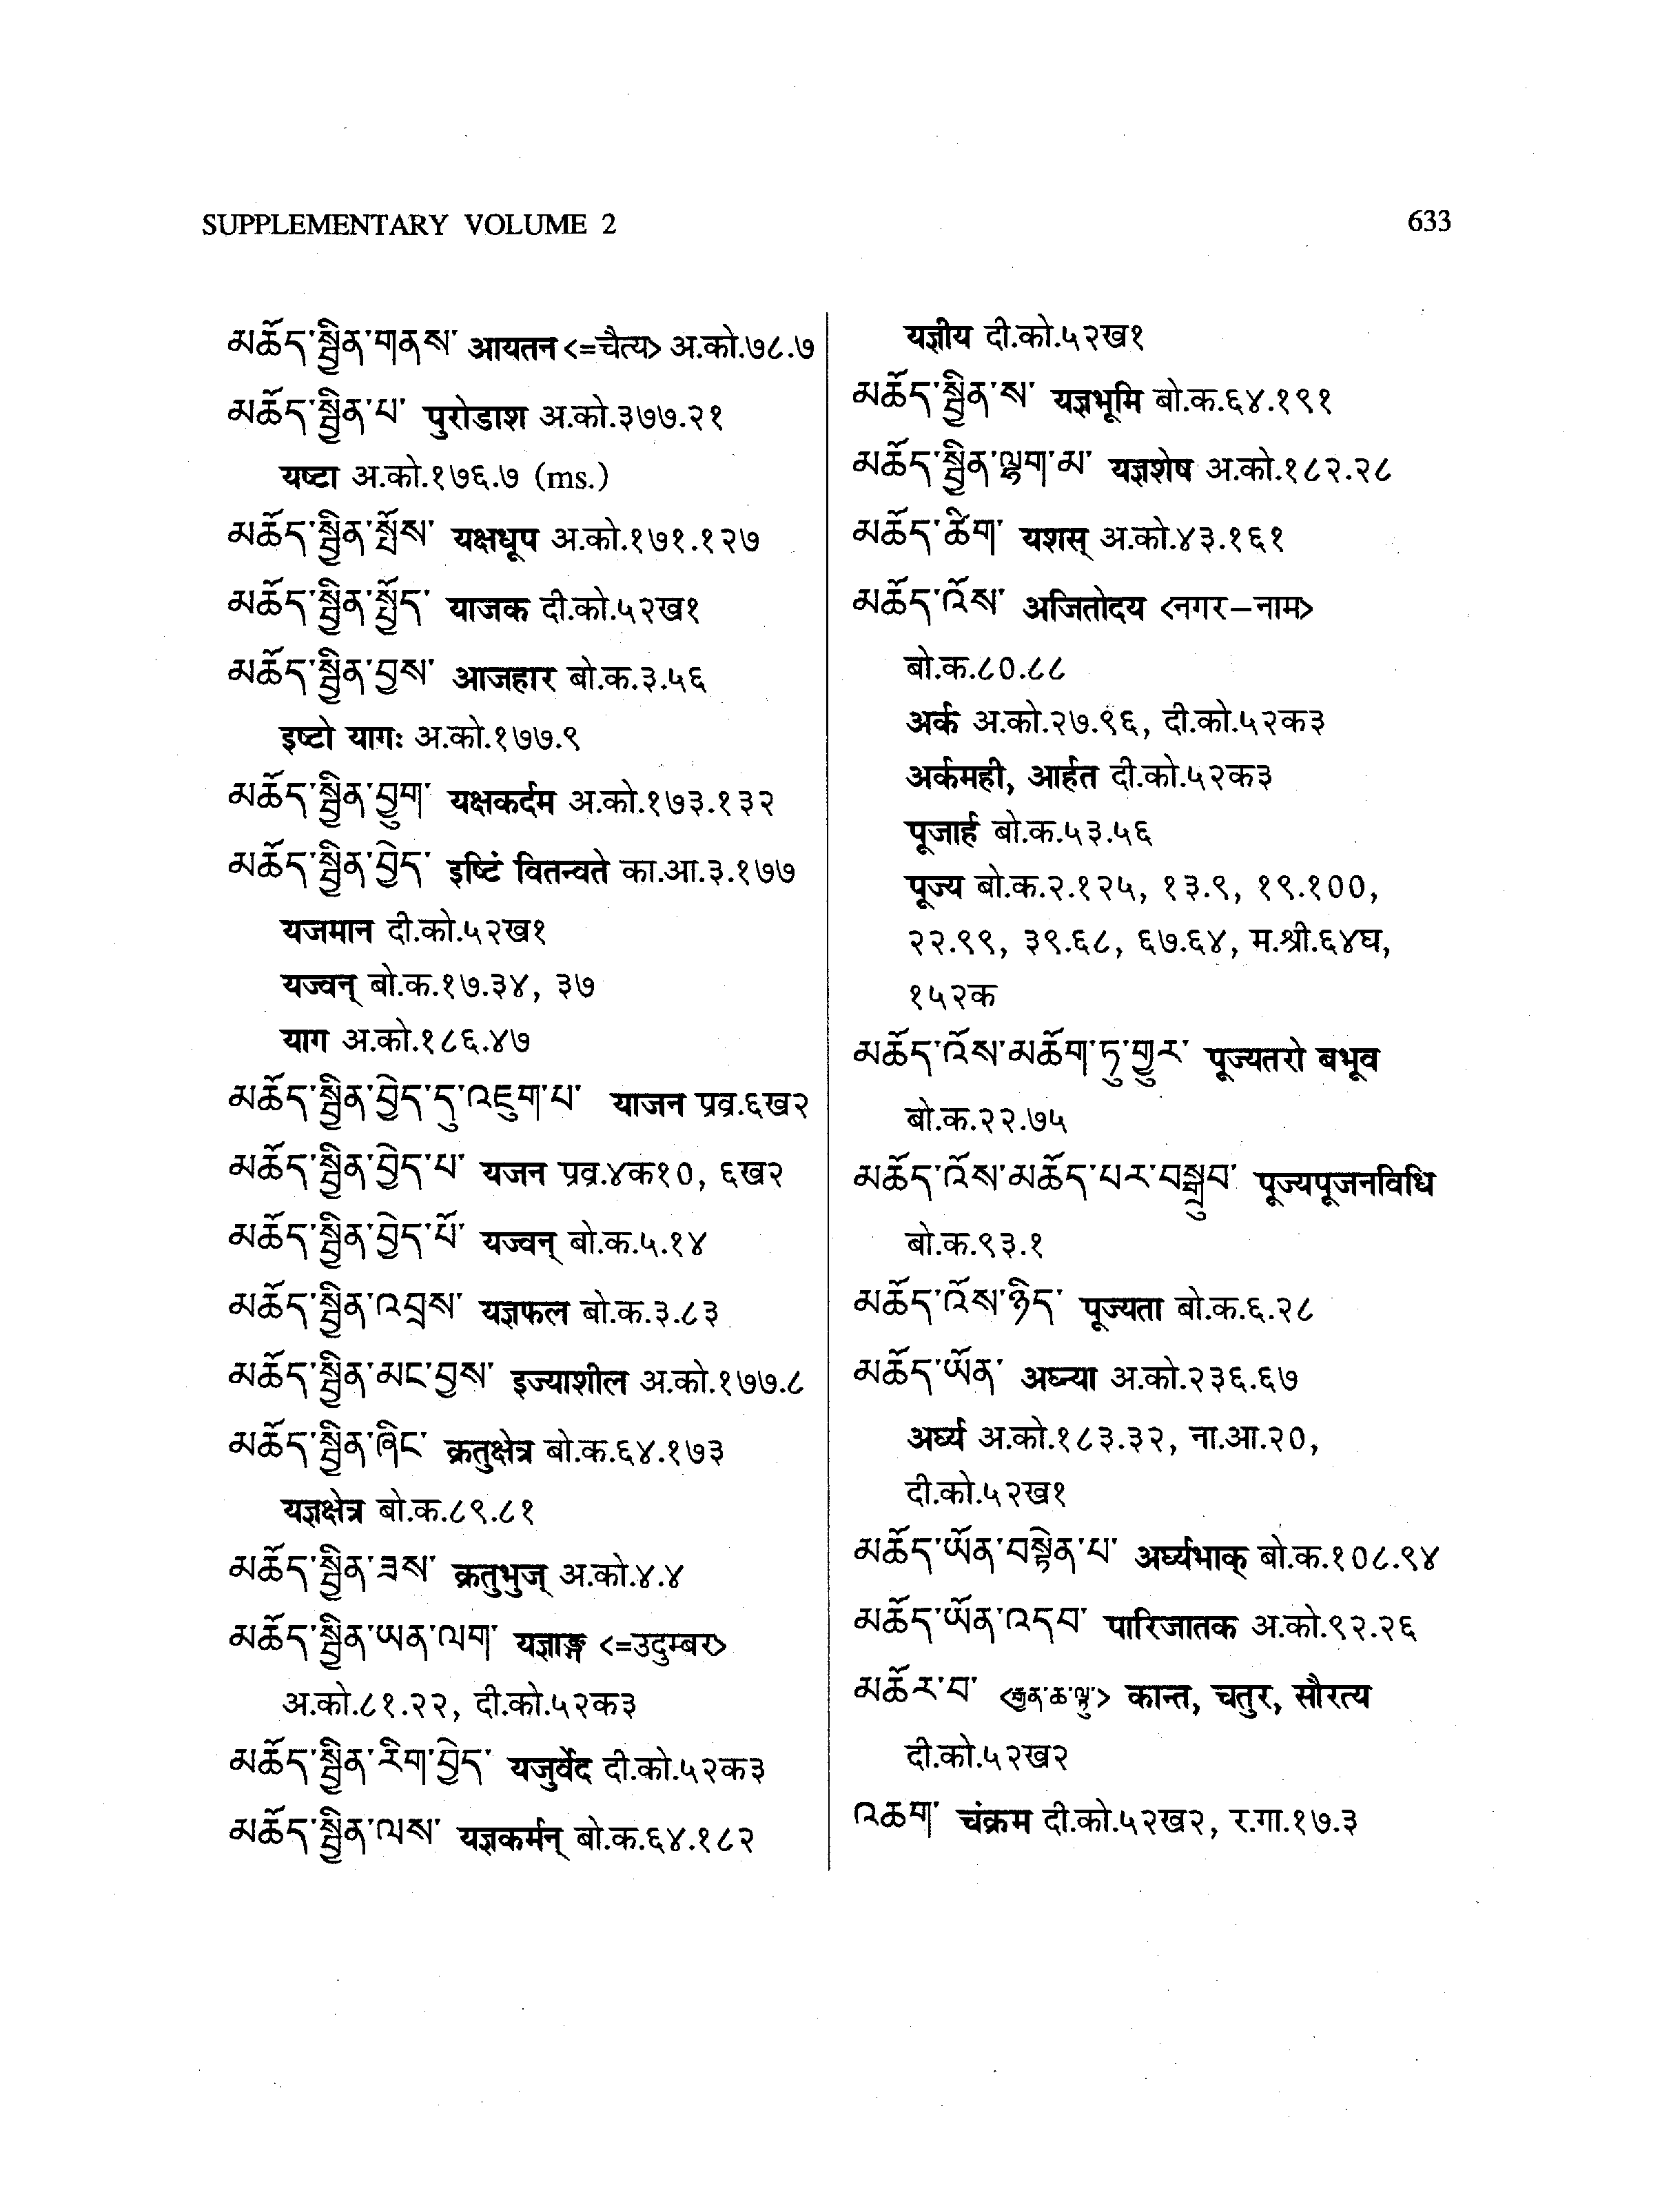 SUPPLEMENTARY VOLUME 2
633
མཆོད་སྦྱིན་གནས་ आयतन <=चैत्य> अ.को.७८.७
མཆོད་སྦྱིན་པ་ पुरोडाश अ.को.३७७.२१
यष्टा अ.को.१७६.७ (ms.)
མཆོད་སྦྱིན་སྤོས་ यक्षधूप अ.को.१७१.१२७
མཆོད་སྦྱིན་སྤྱོད་ याजक दी.को.५२ख१
མཆོད་སྦྱིན་བྱས་ आजहार बो.क.३.५६
इष्टो यागः अ.को.१७७.९
མཆོད་སྦྱིན་བྱུག་ यक्षकर्दम अ.को.१७३.१३२
མཆོད་སྦྱིན་བྱེད་ इष्टिं वितन्वते का.आ.३.१७७
यजमान दी.को.५२ख१
यज्वन् बो.क.१७.३४, ३७
याग अ.को.१८६.४७
མཆོད་སྦྱིན་བྱེད་དུ་འཇུག་པ་ याजन प्रव्र.६ख२
མཆོད་སྦྱིན་བྱེད་པ་ यजन प्रव्र.४क१०, ६ख२
མཆོད་སྦྱིན་བྱེད་པོ་ यज्वन् बो.क.५.१४
མཆོད་སྦྱིན་འབྲས་ यज्ञफल बो.क.३.८३
མཆོད་སྦྱིན་མང་བྱས་ इज्याशील अ.को.१७७.८
མཆོད་སྦྱིན་ཞིང་ क्रतुक्षेत्र बो.क.६४.१७३
यज्ञक्षेत्र बो.क.८९.८१
མཆོད་སྦྱིན་ཟས་ क्रतुभुज् अ.को.४.४
མཆོད་སྦྱིན་ཡན་ལག་ यज्ञाङ्ग <=उदुम्बर>
अ.को.८१.२२, दी.को.५२क३
མཆོད་སྦྱིན་རིག་བྱེད་ यजुर्वेद दी.को.५२क३
མཆོད་སྦྱིན་ལས་ यज्ञकर्मन् बो.क.६४.१८२
यज्ञीय दी.को.५२ख१
མཆོད་སྦྱིན་ས་ यज्ञभूमि बो.क.६४.१९१
མཆོད་སྦྱིན་ལྷག་མ་ यज्ञशेष अ.को.१८२.२८
མཆོད་ཚིག་ यशस् अ.को.४३.१६१
མཆོད་འོས་ अजितोदय <नगर–नाम>
बो.क.८०.८८
अर्क अ.को.२७.९६, दी.को.५२क३
अर्कमही, आर्हत दी.को.५२क३
पूजार्ह बो.क.५३.५६
पूज्य बो.क.२.१२५, १३.९, १९.१००,
२२.९९, ३९.६८, ६७.६४, म.श्री.६४घ,
१५२क
མཆོད་འོས་མཆོག་ཏུ་གྱུར་ पूज्यतरो बभूव
बो.क.२२.७५
མཆོད་འོས་མཆོད་པར་བསྒྲུབ་ पूज्यपूजनविधि
बो.क.९३.१
མཆོད་འོས་ཉིད་ पूज्यता बो.क.६.२८
མཆོད་ཡོན་ अघ्न्या अ.को.२३६.६७
अर्घ्य अ.को.१८३.३२, ना.आ.२०,
दी.को.५२ख१
མཆོད་ཡོན་བསྟེན་པ་ अर्घ्यभाक् बो.क.१०८.९४
མཆོད་ཡོན་འདབ་ पारिजातक अ.को.९२.२६
མཆོར་བ་ <རྒྱན་ཆ་ལྟ་བུ་> कान्त, चतुर, सौरत्य
दी.को.५२ख२
འཆག་ चंक्रम दी.को.५२ख२, र.गा.१७.३